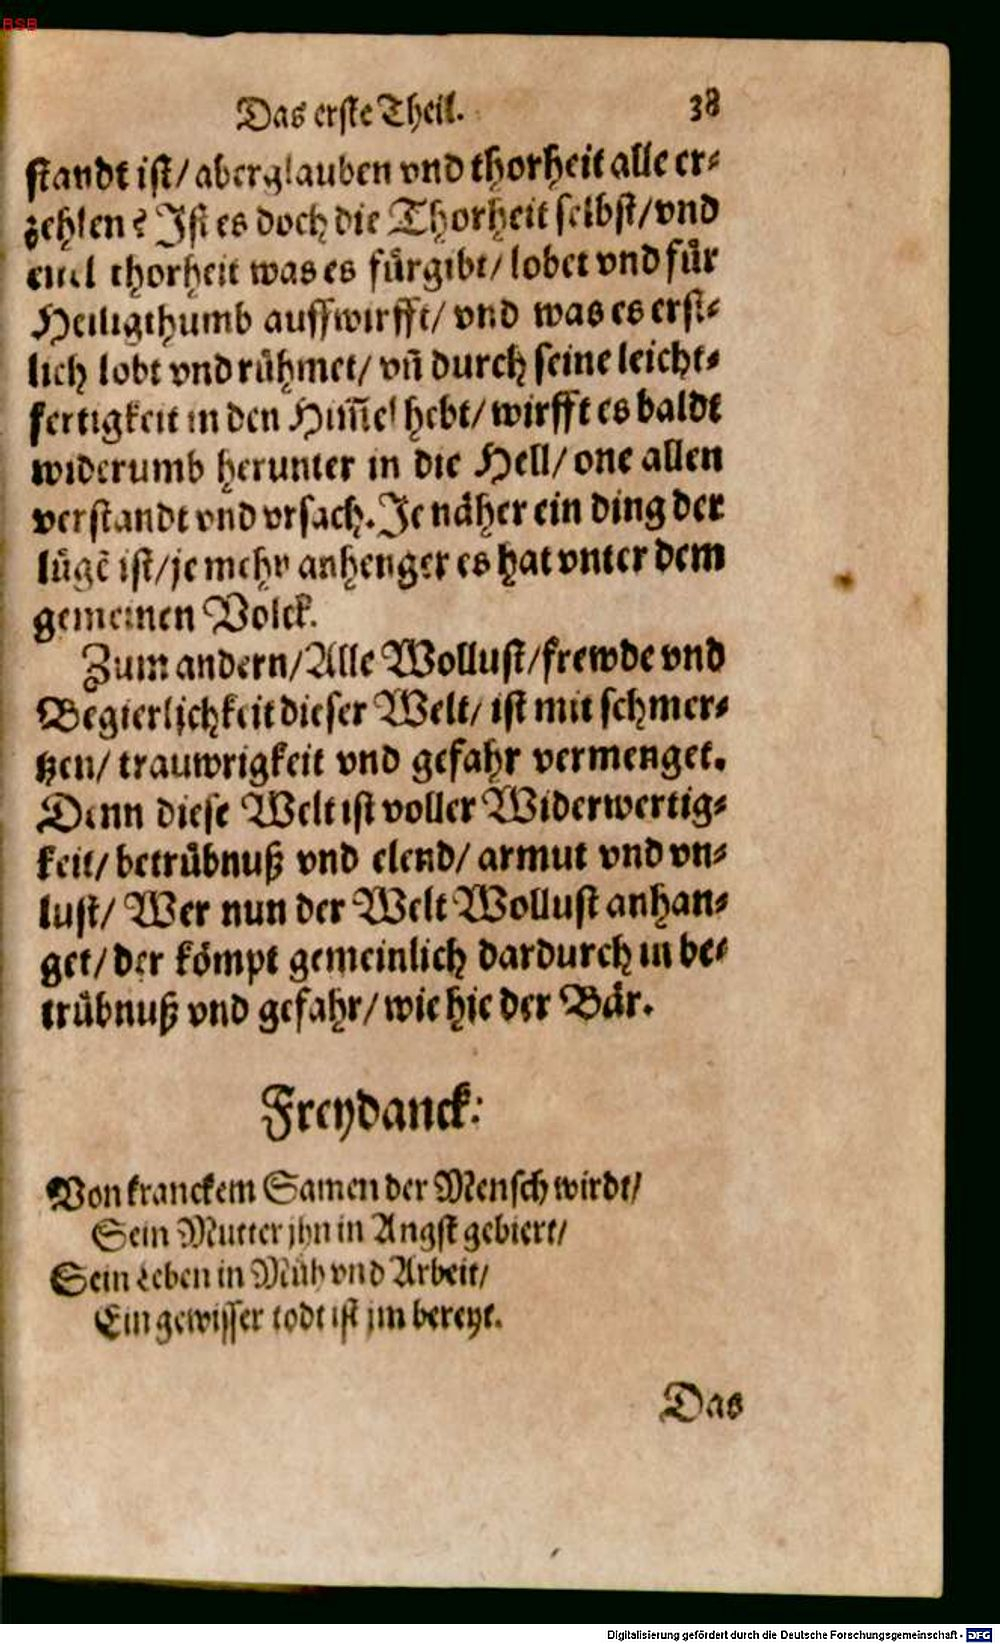 BSB
Das erste Theil. 38
standt ist/ aberglauben vnd thorheit alle er⸗
zehlen? Ist es doch die Thorheit selbst/ vnd
eitel thorheit was es fürgibt/ lobet vnd für
Heiligthumb auffwirfft/ vnd was es erst⸗
lich lobt vnd rühmet/ vn̄ durch seine leicht⸗
fertigkeit in den Him̄el hebt/ wirfft es baldt
widerumb herunter in die Hell/ one allen
verstandt vnd vrsach. Je näher ein ding der
lügē ist/ je mehr anhenger es hat vnter dem
gemeinen Volck.
Zum andern/ Alle Wollust/ frewde vnd
Begierlichkeit dieser Welt/ ist mit schmer⸗
tzen/ trauwrigkeit vnd gefahr vermenget.
Denn diese Welt ist voller Widerwertig⸗
keit/ betrübnuß vnd elend/ armut vnd vn⸗
lust/ Wer nun der Welt Wollust anhan⸗
get/ der kömpt gemeinlich dardurch in be⸗
trübnuß vnd gefahr/ wie hie der Bär.
Freydanck:
Von kranckem Samen der Mensch wirdt/
Sein Mutter jhn in Angst gebiert/
Sein Leben in Müh vnd Arbeit/
Ein gewisser todt ist jm bereyt.
Das
Digitalisierung gefördert durch die Deutsche Forschungsgemeinschaft - DFG